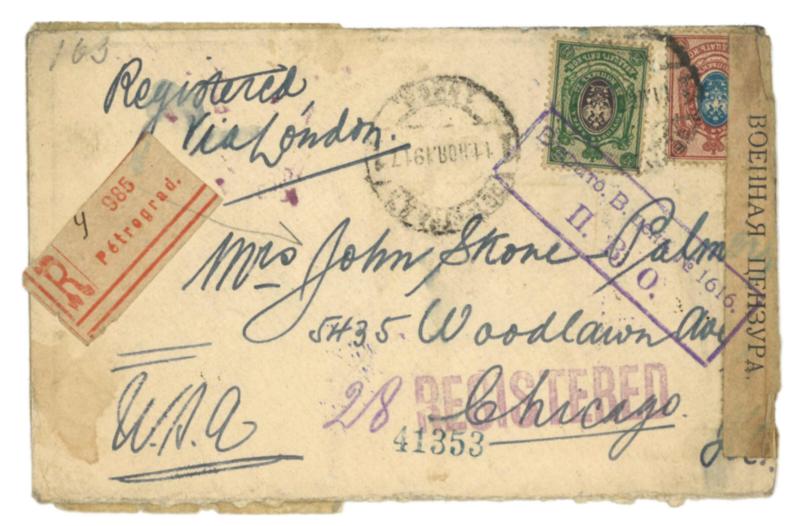 163
Registered,
Via London.
11 НОЯ.1917
R
985
Pétrograd.
Вскрыто. В. Ценз. № 1616.
П. В. О.
ВОЕННАЯ ЦЕНЗУРА.
Mrs John Skone Palm
5435 Woodlawn Ave
28 REGISTERED
Chicago.
41353
U.S.A